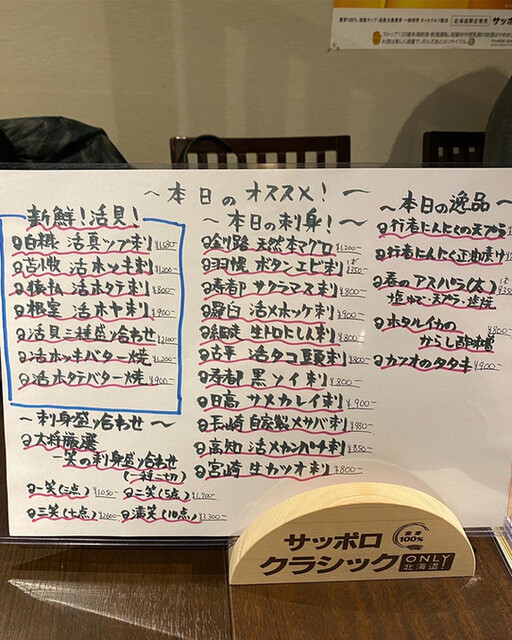 北海道限定発売
～本日のオススメ！～
新鮮！活貝！
白糠 活真ツブ刺 ¥1,580-
苫小牧 活ホッキ刺 ¥1,200-
猿払 活ホタテ刺 ¥800-
根室 活ホヤ刺 ¥900-
活貝三種盛り合わせ
活ホッキバター焼 ¥1,200-
活ホタテバター焼 ¥900-
～刺身盛り合わせ～
大将厳選
一笑の刺身盛り合わせ
(一種二切)
一笑(三点) ¥1050-
二笑(5点)
三笑(七点)
満笑(10点)
～本日の刺身！～
釧路 天然本マグロ ¥1,200-
羽幌 ボタンエビ刺
寿都 サクラマス刺 ¥800-
羅臼 活〆ホッケ刺 ¥900-
網走 生トロにしん刺 ¥800-
古平 活タコ頭刺 ¥800-
寿都 黒ソイ刺 ¥800-
日高 サメカレイ刺 ¥900-
長崎 自家製〆サバ刺
高知 活〆カンパチ刺
宮崎 生カツオ刺 ¥800-
～本日の逸品～
行者にんにくの天プラ
行者にんにく正油漬け
春のアスパラ(太)
塩ゆで・天プラ・塩焼
ホタルイカの
からし酢味噌 ¥800-
カツオのタタキ ¥900-
サッポロ
クラシック
麦芽
100%
ONLY
北海道!